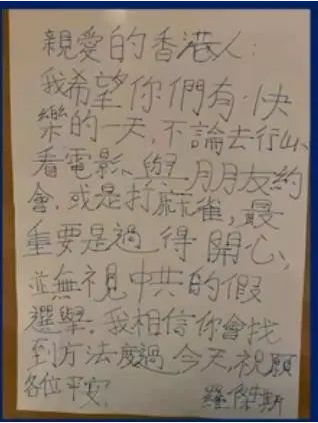 親愛的香港人：
我希望你們有快
樂的一天，不論去行山、
看電影、與朋友約
會，或是打麻雀，最
重要是過得開心，
並無視中共的假
選舉。我相信你會找
到方法度過今天。祝願
各位平安。
羅傑斯